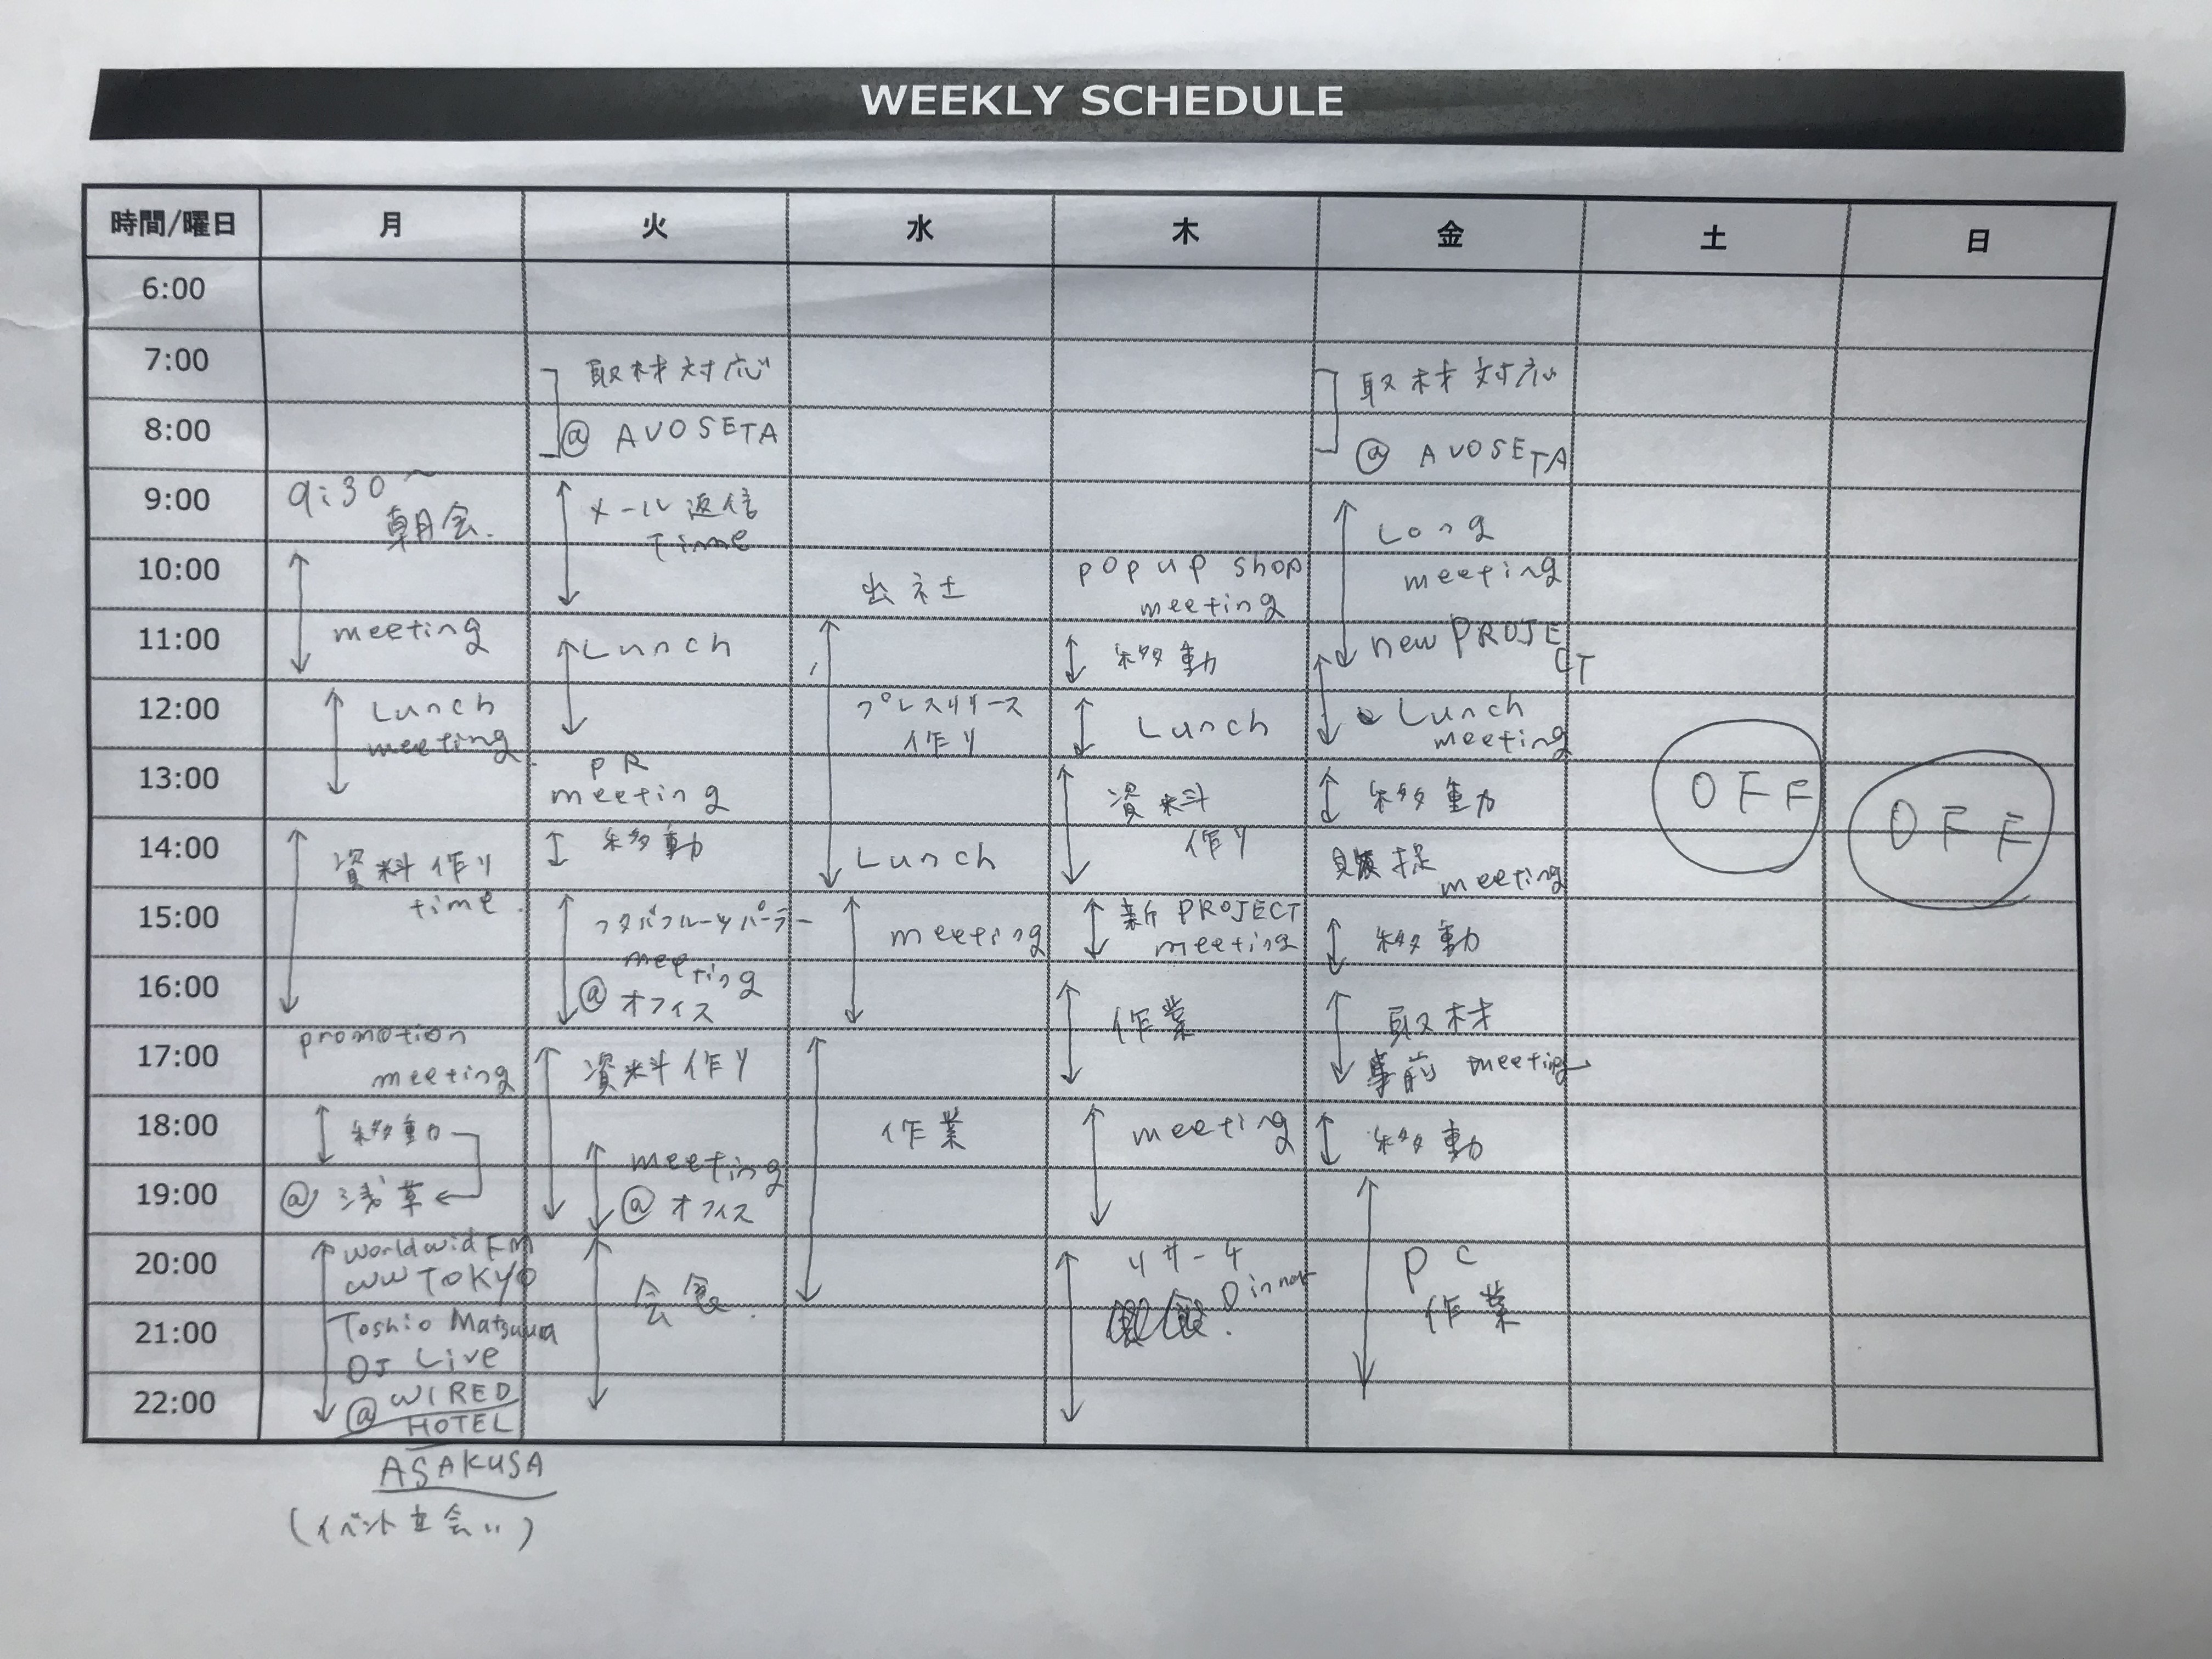 WEEKLY SCHEDULE
時間/曜日 月 火 水 木 金 土 日
6:00
7:00
8:00
9:00
10:00
11:00
12:00
13:00
14:00
15:00
16:00
17:00
18:00
19:00
20:00
21:00
22:00
9:30～
朝会.
meeting
Lunch
meeting.
資料作り
time.
promotion
meeting
移動
@ 浅草
worldwid FM
WW TOKYO
Toshio Matsuura
DJ Live
@ WIRED
HOTEL
ASAKUSA
(イベント立会い)
取材対応
@ AVOSETA
メール返信
Time
Lunch
PR
meeting
移動
フタバフルーツパーラー
meeting
@ オフィス
資料作り
meeting
@ オフィス
会食.
出社
プレスリリース
作り
Lunch
meeting
作業
popup shop
meeting
移動
Lunch
資料
作り
新PROJECT
meeting
作業
meeting
リサーチ
Dinner
取材対応
@ AVOSETA
Long
meeting
new PROJE
CT
Lunch
meeting
移動
meeting
移動
取材
事前 meeting
移動
PC
作業
OFF
OFF